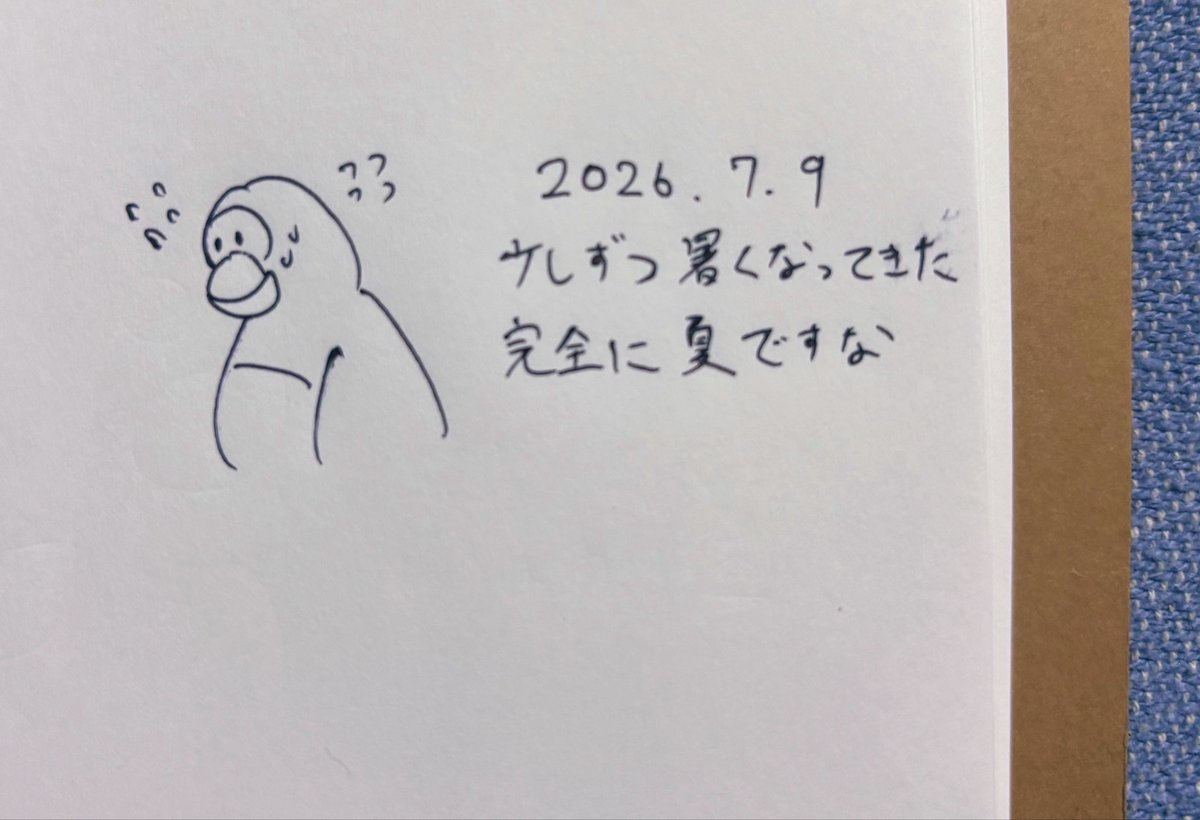 2026.7.9
少しずつ暑くなってきた
完全に夏ですな